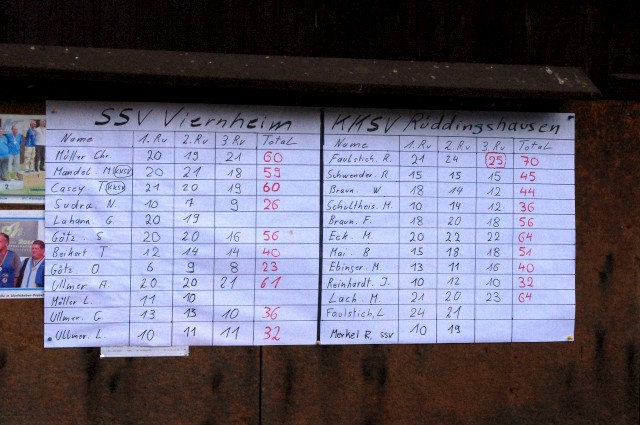 SSV Viernheim
Name 1. Rv 2. Rv 3 Rv Total
Müller Chr. 20 19 21 60
Mandel. M (KKSV) 20 21 18 59
Casey T (KKSV) 21 20 19 60
Sudra N. 10 7 9 26
Lahann G. 20 19
Götz S 20 20 16 56
Beikert T 12 14 14 40
Götz O. 6 9 8 23
Ullmer A. 20 20 21 61
Müller L. 11 10
Ullmer. G 13 13 10 36
Ullmer. L. 10 11 11 32
KKSV Rüddingshausen
Name 1. Rv 2. Rv 3 Rv Total
Faulstich. R. 21 24 25 70
Schwender. R 15 15 15 45
Braun. W 18 14 12 44
Schultheis. M. 10 14 12 36
Braun. F. 18 20 18 56
Eck. M. 20 22 22 64
Mai. B 15 18 18 51
Ebinger. M. 13 11 16 40
Reinhardt. J. 10 12 10 32
Lach. M. 21 20 23 64
Faulstich, L 24 21
Merkel R. SSV 10 19